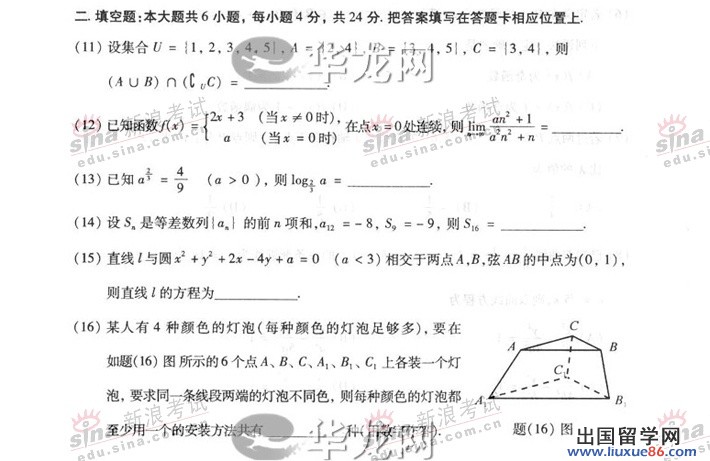 二. 填空题:本大题共 6 小题,每小题 4 分,共 24 分. 把答案填写在答题卡相应位置上.
(11) 设集合 U = {1, 2, 3, 4, 5}, A = {2, 4}, B = {3, 4, 5}, C = {3, 4}, 则
(A ∪ B) ∩ (∁_U C) = ________.
(12) 已知函数 f(x) = { 2x + 3 (当 x ≠ 0 时), a (当 x = 0 时) 在点 x = 0 处连续, 则 lim (an² + 1)/(a²n² + n) = ________.
(13) 已知 a^(2/3) = 4/9 (a > 0), 则 log_(2/3) a = ________.
(14) 设 Sₙ 是等差数列 {aₙ} 的前 n 项和, a₁₂ = -8, S₉ = -9, 则 S₁₆ = ________.
(15) 直线 l 与圆 x² + y² + 2x - 4y + a = 0 (a < 3) 相交于两点 A, B, 弦 AB 的中点为 (0, 1),
则直线 l 的方程为________.
(16) 某人有 4 种颜色的灯泡(每种颜色的灯泡足够多), 要在
如题(16) 图 所示的 6 个点 A、B、C、A₁、B₁、C₁ 上各装一个灯
泡, 要求同一条线段两端的灯泡不同色, 则每种颜色的灯泡都
至少用一个的安装方法共有 ________ 种
C
A
B
C₁
A₁
B₁
题(16) 图
华龙网
华龙网
sina 新浪考试
edu.sina.com.cn
sina 新浪考试
edu.sina.com.cn
sina 新浪考试
edu.sina.com.cn
sina 新浪考试
edu.sina.com.cn
出国留学网
www.liuxue86.com